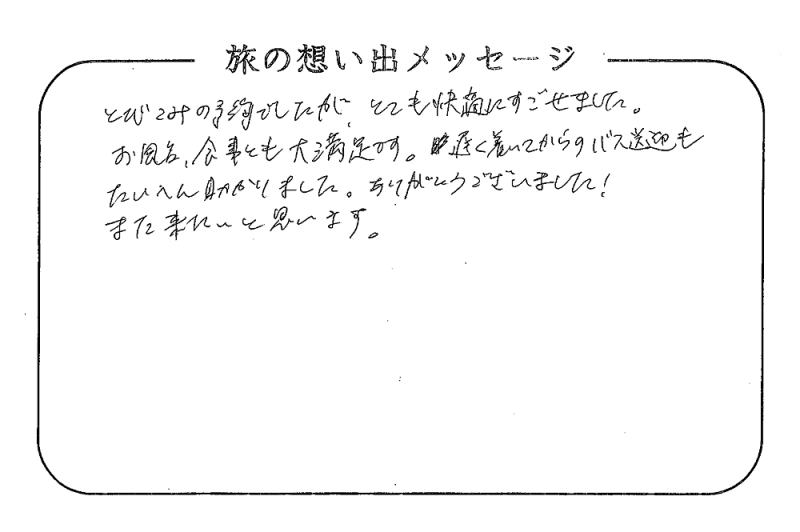 旅の想い出メッセージ
とびこみの予約でしたが、とても快適にすごせました。
お風呂、食事とも大満足です。遅く着いてからのバス送迎も
たいへん助かりました。ありがとうございました!
また来たいと思います。